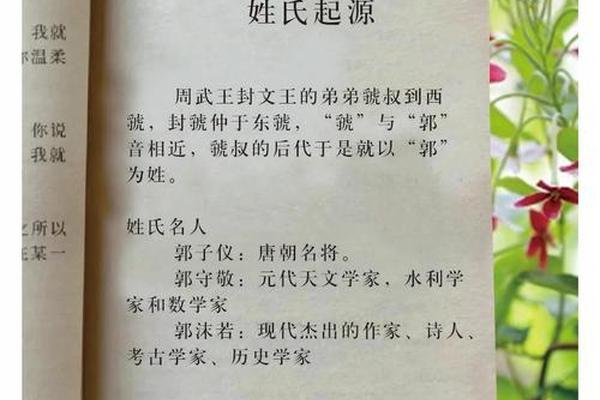 我就
温柔
你说
我就
之所以
在某一
姓氏起源
周武王封文王的弟弟虢叔到西
虢，封虢仲于东虢，“虢”与“郭”
音相近，虢叔的后代于是就以“郭”
为姓。
姓氏名人
郭子仪：唐朝名将。
郭守敬：元代天文学家，水利学
家和数学家
郭沫若：现代杰出的作家、诗人、
考古学家、历史学家